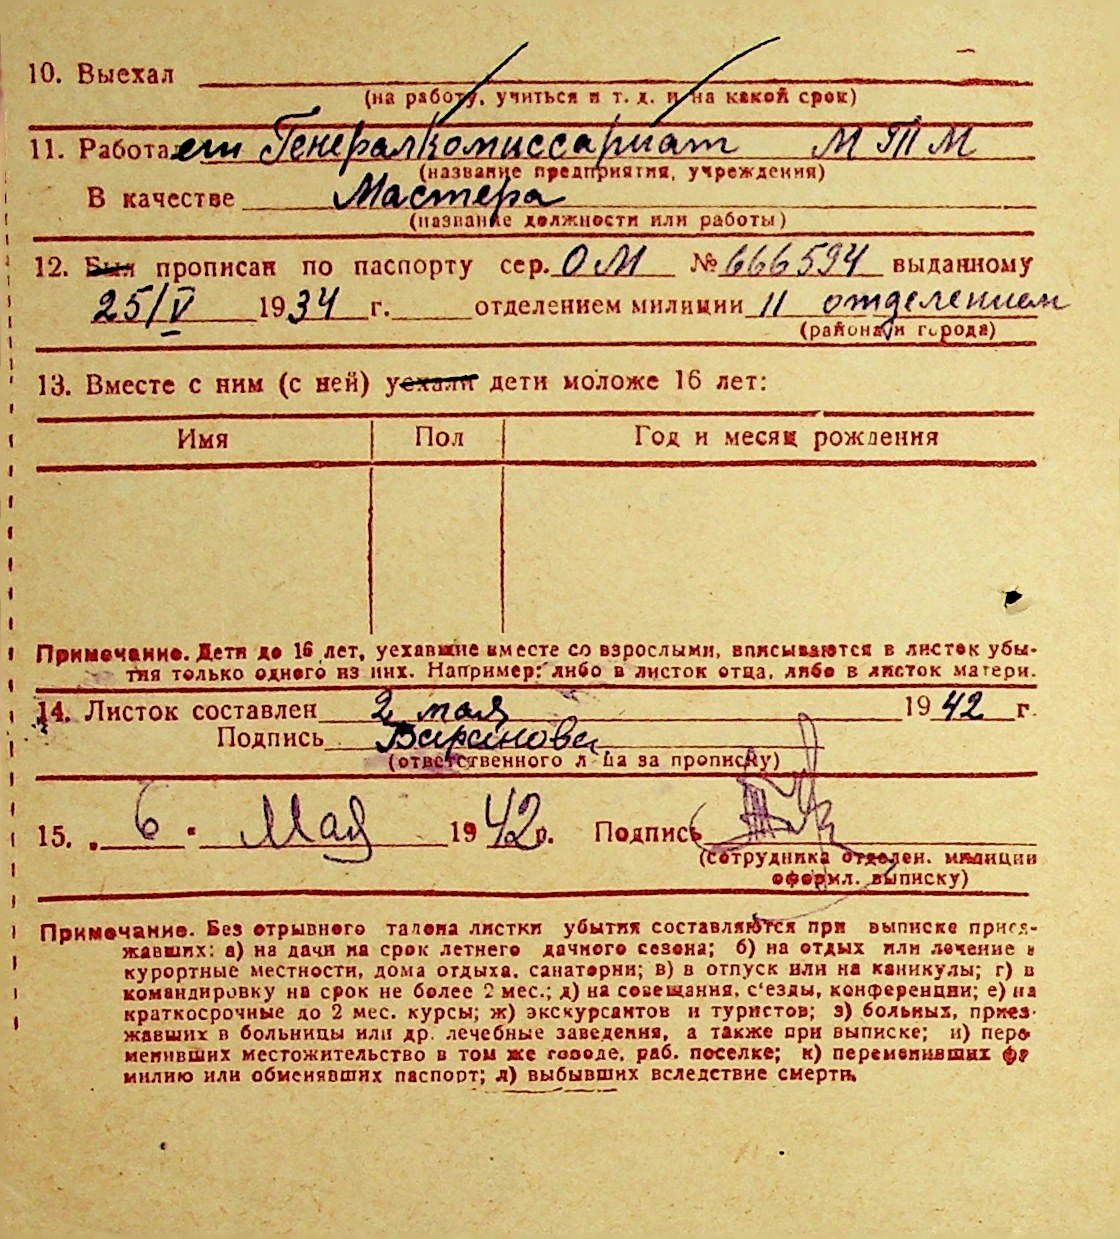 10. Выехал
(на работу, учиться и т. д. и на какой срок)
11. Работает Генералкомиссариат МТМ
(название предприятия, учреждения)
В качестве Мастера
(название должности или работы)
12. Был прописан по паспорту сер. ОМ № 666594 выданному
25/V 1934 г. отделением милиции 11 отделением
(района и города)
13. Вместе с ним (с ней) уехали дети моложе 16 лет:
Имя Пол Год и месяц рождения
Примечание. Дети до 16 лет, уехавшие вместе со взрослыми, вписываются в листок убы-
тия только одного из них. Например: либо в листок отца, либо в листок матери.
14. Листок составлен 2 мая 1942 г.
Подпись Баранова
(ответственного л ца за прописку)
15. „ 6 " Мая 1942 г. Подпись
(сотрудника отделен. милиции
оформл. выписку)
Примечание. Без отрывного талона листки убытия составляются при выписке приез-
жавших: а) на дачи на срок летнего дачного сезона; б) на отдых или лечение в
курортные местности, дома отдыха, санатории; в) в отпуск или на каникулы; г) в
командировку на срок не более 2 мес.; д) на совещания, с'езды, конференции; е) на
краткосрочные до 2 мес. курсы; ж) экскурсантов и туристов; з) больных, приез-
жавших в больницы или др. лечебные заведения, а также при выписке; и) пере
менивших местожительство в том же городе, раб. поселке; к) переменивших фа
милию или обменявших паспорт; л) выбывших вследствие смерти.